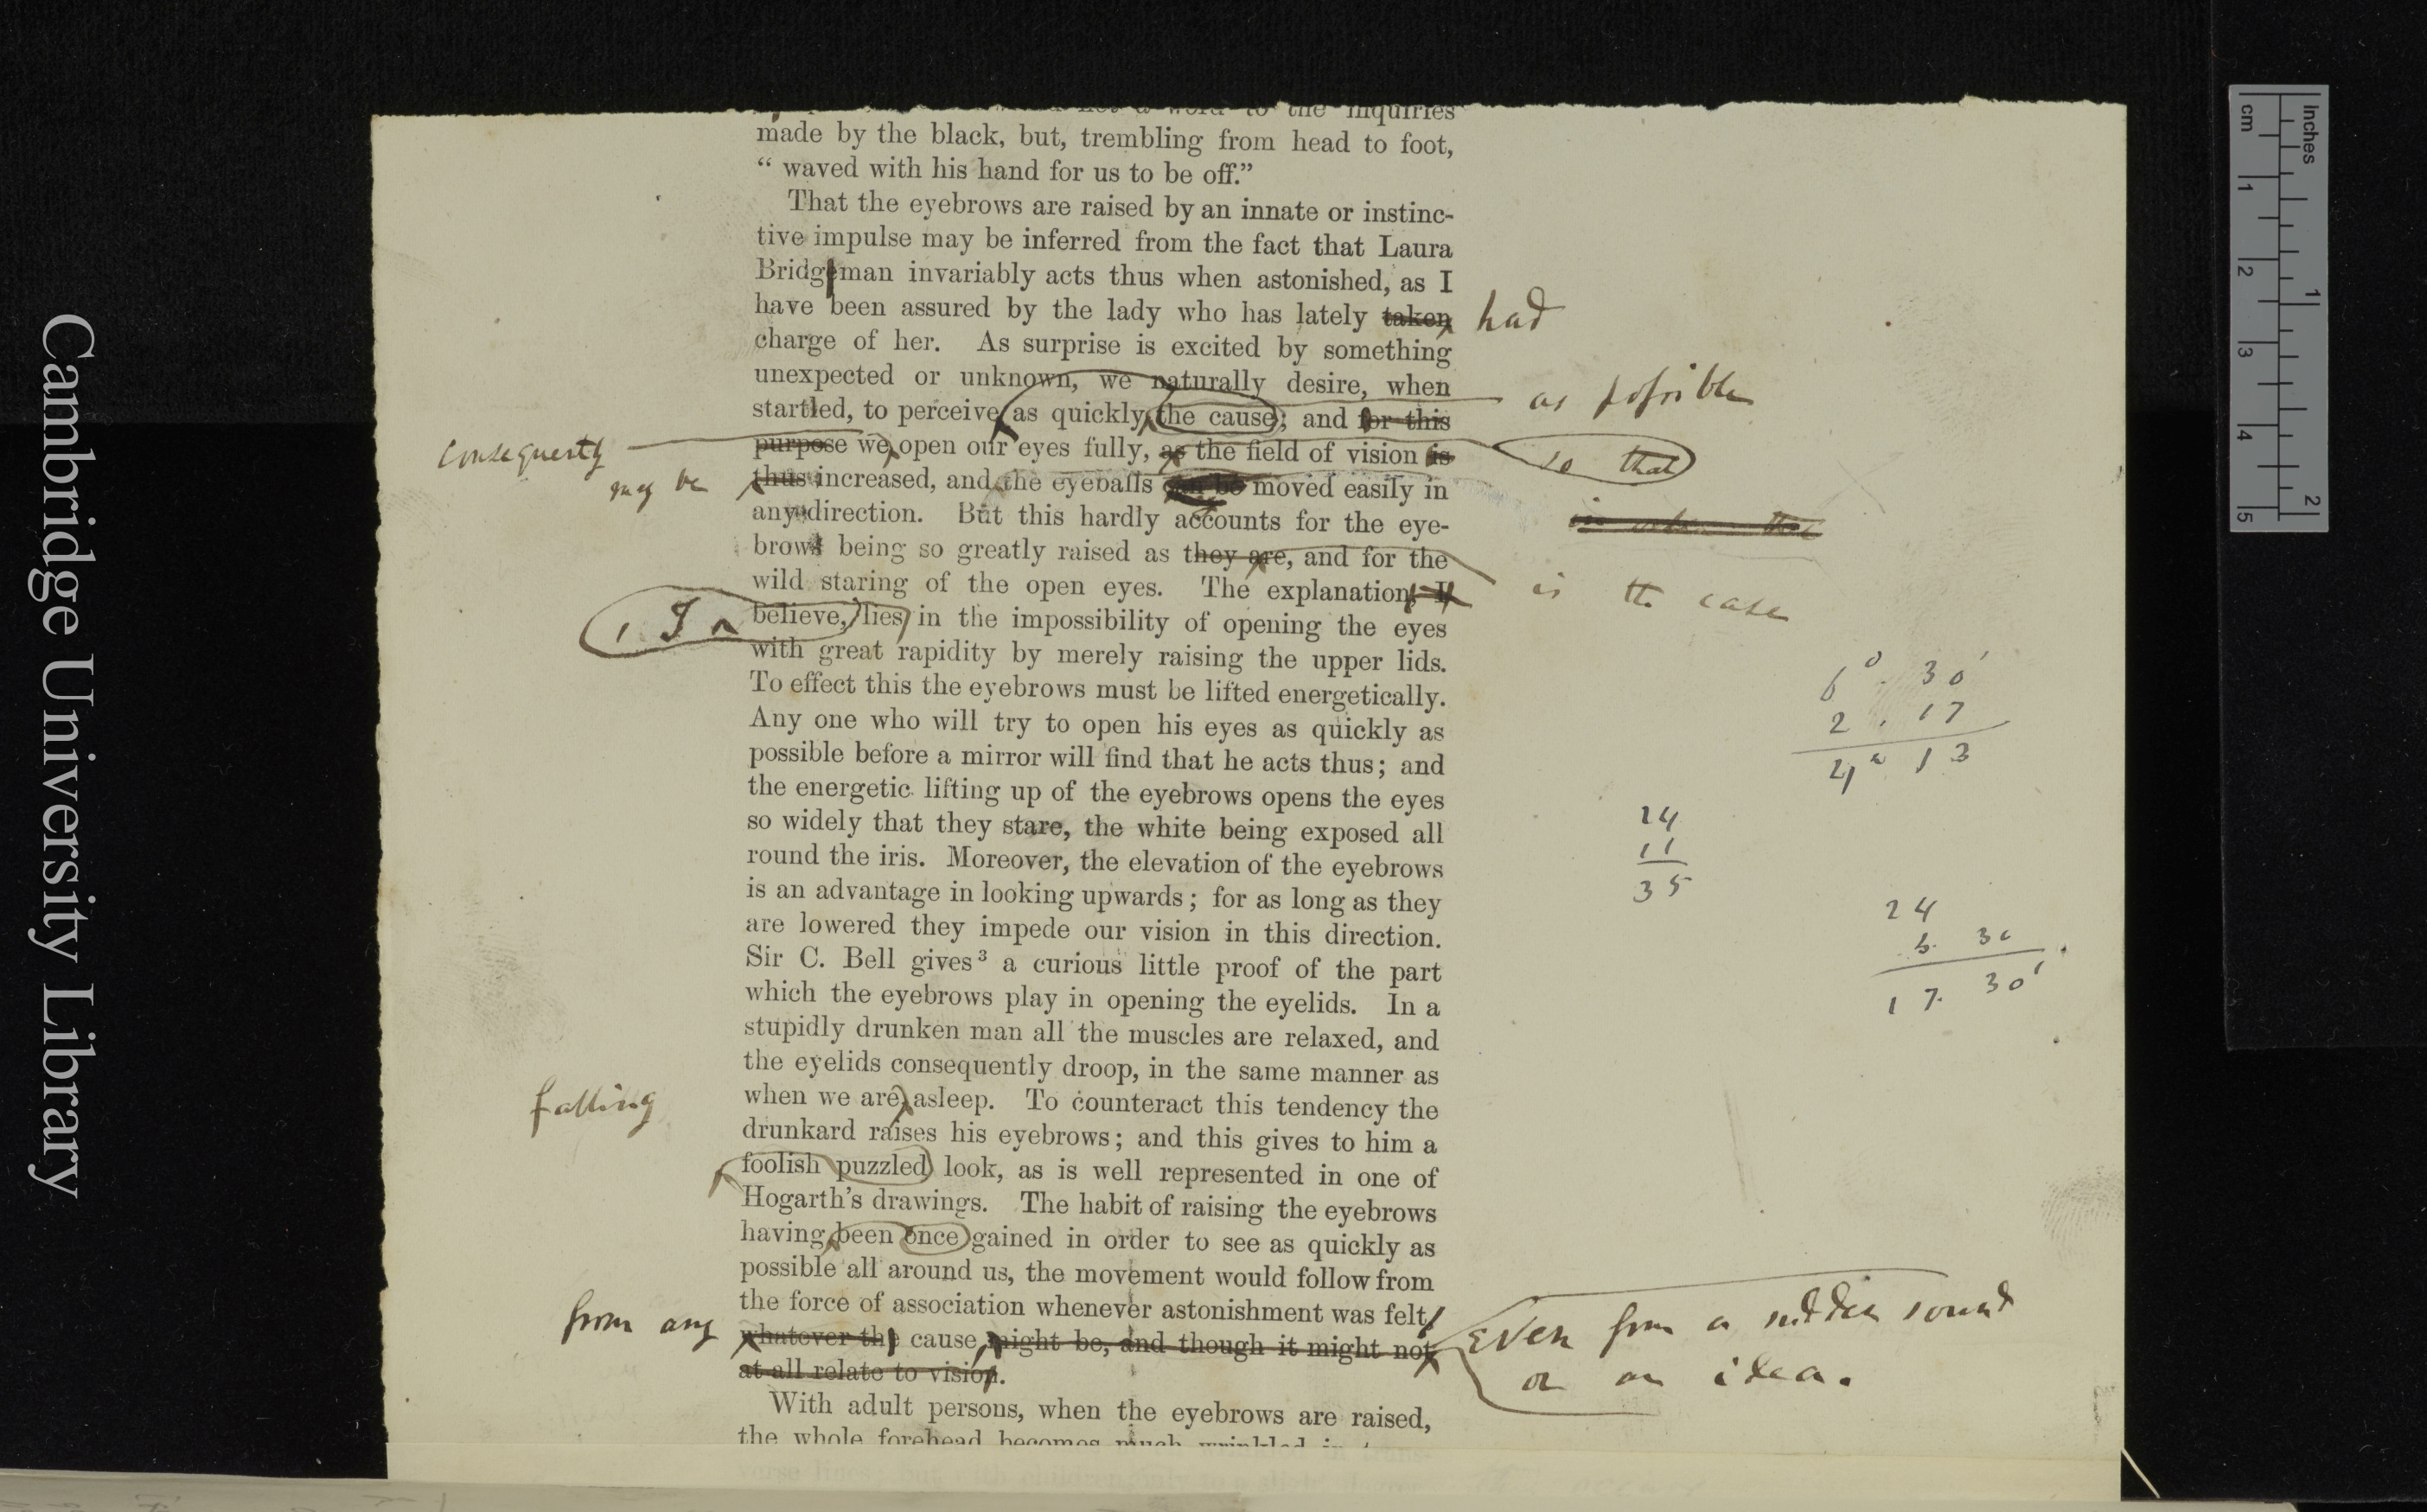 to the inquiries
made by the black, but, trembling from head to foot,
“ waved with his hand for us to be off.”
That the eyebrows are raised by an innate or instinc-
tive impulse may be inferred from the fact that Laura
Bridgeman invariably acts thus when astonished, as I
have been assured by the lady who has lately taken had
charge of her. As surprise is excited by something
unexpected or unknown, we naturally desire, when
startled, to perceive as quickly the cause; and for this as possible
consequently purpose we open our eyes fully, as the field of vision is so that
may be thus increased, and the eyeballs can be moved easily in
any direction. But this hardly accounts for the eye- in order that
brows being so greatly raised as they are, and for the
wild staring of the open eyes. The explanation, I is the case
, I believe, lies in the impossibility of opening the eyes
with great rapidity by merely raising the upper lids.
To effect this the eyebrows must be lifted energetically.
Any one who will try to open his eyes as quickly as
possible before a mirror will find that he acts thus; and
the energetic lifting up of the eyebrows opens the eyes
so widely that they stare, the white being exposed all
round the iris. Moreover, the elevation of the eyebrows
is an advantage in looking upwards; for as long as they
are lowered they impede our vision in this direction.
Sir C. Bell gives³ a curious little proof of the part
which the eyebrows play in opening the eyelids. In a
stupidly drunken man all the muscles are relaxed, and
the eyelids consequently droop, in the same manner as
falling when we are asleep. To counteract this tendency the
drunkard raises his eyebrows; and this gives to him a
foolish puzzled look, as is well represented in one of
Hogarth’s drawings. The habit of raising the eyebrows
having been once gained in order to see as quickly as
possible all around us, the movement would follow from
the force of association whenever astonishment was felt
from any whatever the cause might be, and though it might not Even from a sudden sound
at all relate to vision. or an idea.
With adult persons, when the eyebrows are raised,
the whole forehead becomes much wrinkled in trans-
verse lines; but with children only to a slight degree
6° 30'
2 . 17
4° 13
24
11
35
24
30
17. 30'
Cambridge University Library
cm
1
2
3
4
5
inches
1
2